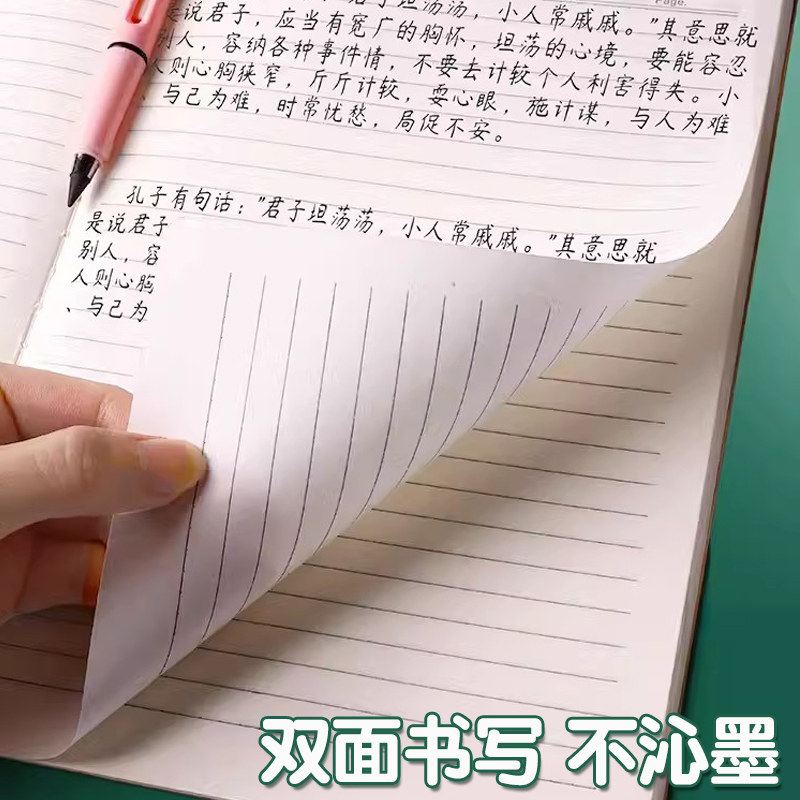 Page.
坦荡荡，小人常戚戚。"其意思就
是说君子，应当有宽广的胸怀，坦荡的心境，要能容忍
别人，容纳各种事件情，不要去计较个人利害得失。小
人则心胸狭窄，斤斤计较，耍心眼，施计谋，与人为难
、与己为难，时常忧愁，局促不安。
孔子有句话："君子坦荡荡，小人常戚戚。"其意思就
是说君子
别人，容
人则心胸
、与己为
双面书写 不沁墨